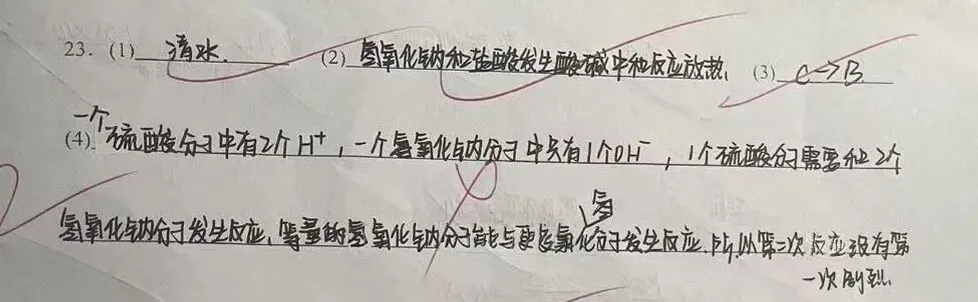 23. (1) 清水. (2) 氢氧化钠和盐酸发生酸碱中和反应放热. (3) C→B
一个
(4). 硫酸分子中有2个H⁺，一个氢氧化钠分子中只有1个OH⁻，1个硫酸分子需要和2个
氢
氢氧化钠分子发生反应，等量的氢氧化钠分子能与更多氯化分子发生反应.所以第二次反应没有第
一次剧烈.